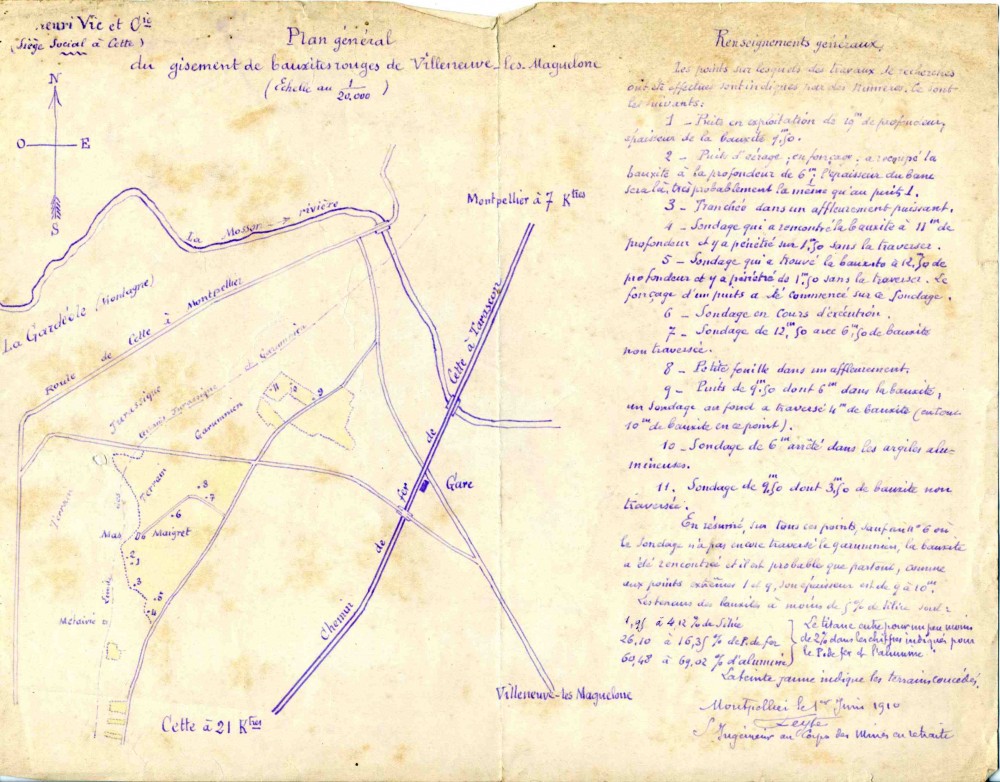 Henri Vic et Cie
(Siège Social à Cette)
Plan général
du gisement de bauxites rouges de Villeneuve-les-Maguelone
(Echelle au 1/20.000)
N
O E
S
Montpellier à 7 Ktres
La Mosson rivière
La Gardéole (Montagne)
Route de Cette à Montpellier
Chemin de fer de Cette à Tarascon
Jurassique
Garumnien
Terrain
Terrain
11
10
9
8
7
6
Mas Maigret
2
1
3
4
Métairie
Gare
Villeneuve-les Maguelone
Cette à 21 Ktres
Renseignements généraux,
Les points sur lesquels des travaux de recherches
ont été effectués sont indiqués par des Numéros. Ce sont
les suivants:
1 - Puits en exploitation de 19m de profondeur,
épaisseur de la bauxite 9m50.
2 - Puits d'aérage, en fonçage, a recoupé la
bauxite à la profondeur de 6m; l'épaisseur du banc
sera là, très probablement la même qu'au puits 1.
3 - Tranchée dans un affleurement puissant.
4 - Sondage qui a rencontré la bauxite à 11m de
profondeur et y a pénétré sur 1m50 sans la traverser.
5 - Sondage qui a trouvé la bauxite à 12m50 de
profondeur et y a pénétré de 1m50 sans la traverser. Le
fonçage d'un puits a été commencé sur ce Sondage.
6 - Sondage en Cours d'exécution.
7 - Sondage de 12m50 avec 6m50 de bauxite
non traversée.
8 - Petite fouille dans un affleurement.
9 - Puits de 9m50 dont 6m dans la bauxite;
un Sondage au fond a traversé 4m de bauxite (en tout
10m de bauxite en ce point).
10 - Sondage de 6m arrêté dans les argiles alu-
mineuses.
11. Sondage de 9m50 dont 3m50 de bauxite non
traversée.
En résumé, sur tous ces points, sauf au no 6 où
le Sondage n'a pas encore traversé le garumnien, la bauxite
a été rencontrée et il est probable que partout, comme
aux points extrêmes 1 et 9, son épaisseur est de 9 à 10m.
Les teneurs des bauxites à moins de 5% de Silice sont:
1,95 à 4.12 % de Silice
26,10 à 16,35 % de P. de fer
60,48 à 69,02 % d'alumine
Le titane entre pour un peu moins
de 2% dans les chiffres indiqués pour
le P. de fer et l'alumine.
La teinte jaune indique les terrains concédés.
Montpellier le 1er Juin 1910
Ingénieur au Corps des Mines en retraite